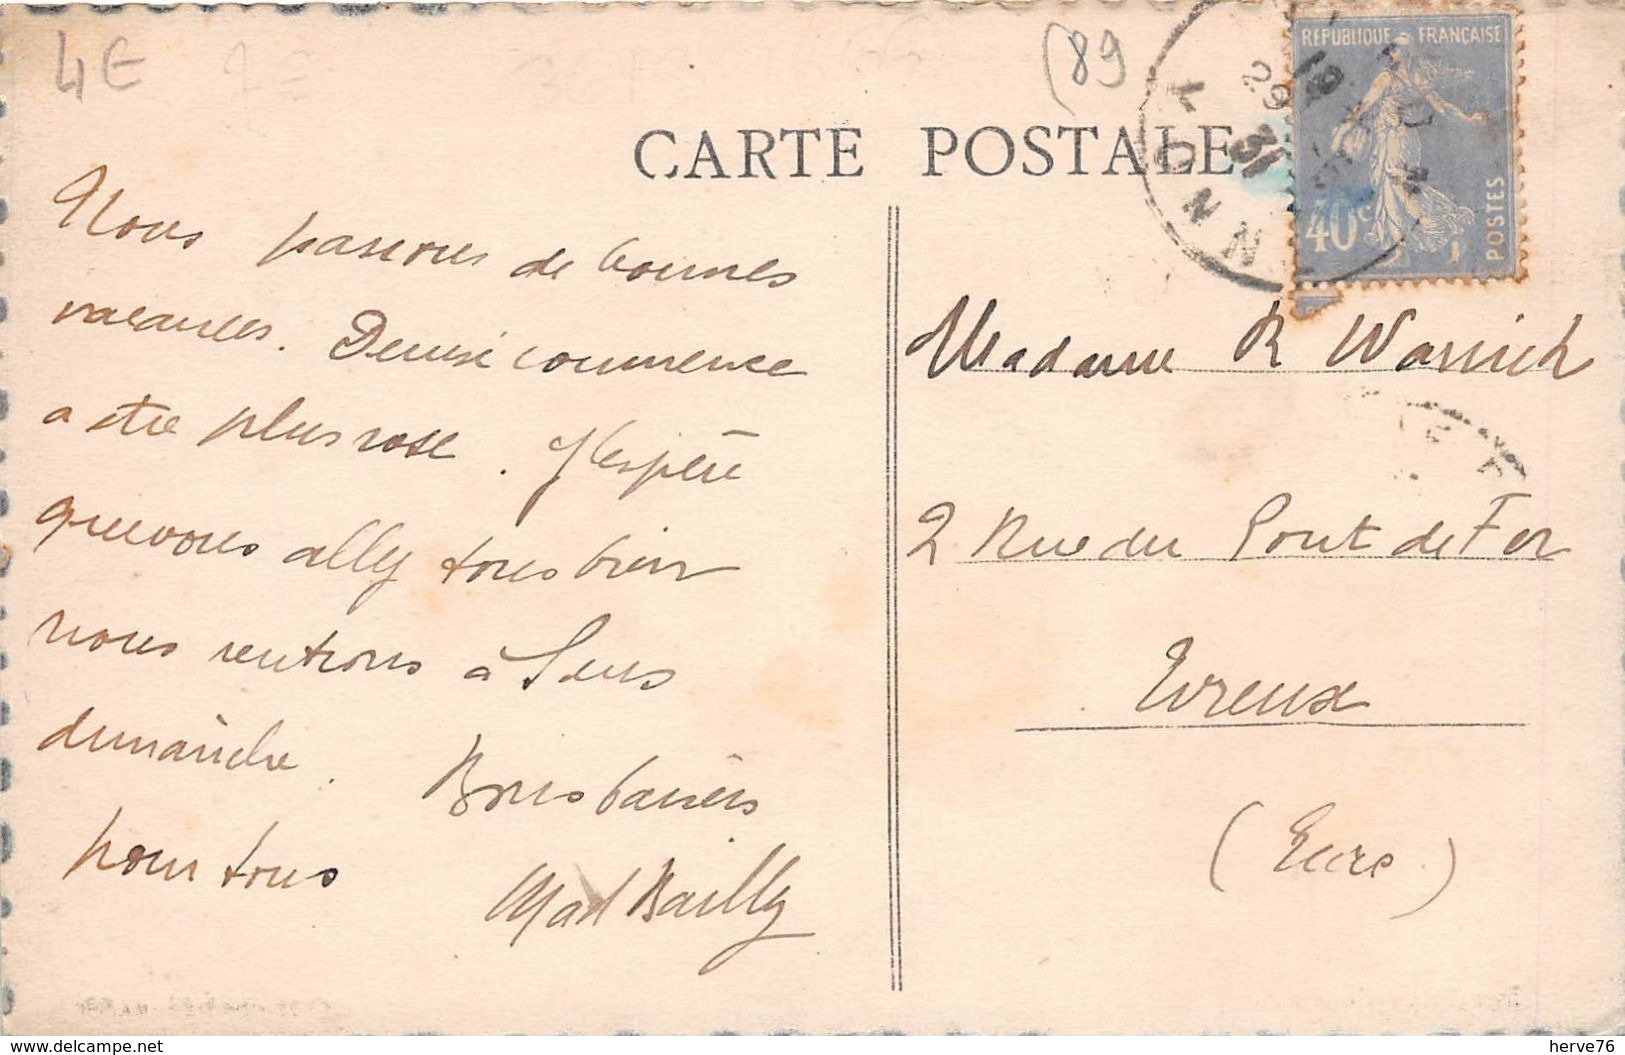 4E
(89
CARTE POSTALE
REPUBLIQUE FRANCAISE
40c
POSTES
Nous passons de bonnes
vacances. Denise commence
a être plus rose. J'espère
que vous ally tous bien
nous rentrons à Sens
dimanche. Bons baisers
pour tous
Bailly
Madame R
2 Rue du Pont de Fer
Evreux
(Eure)
www.delcampe.net
herve76